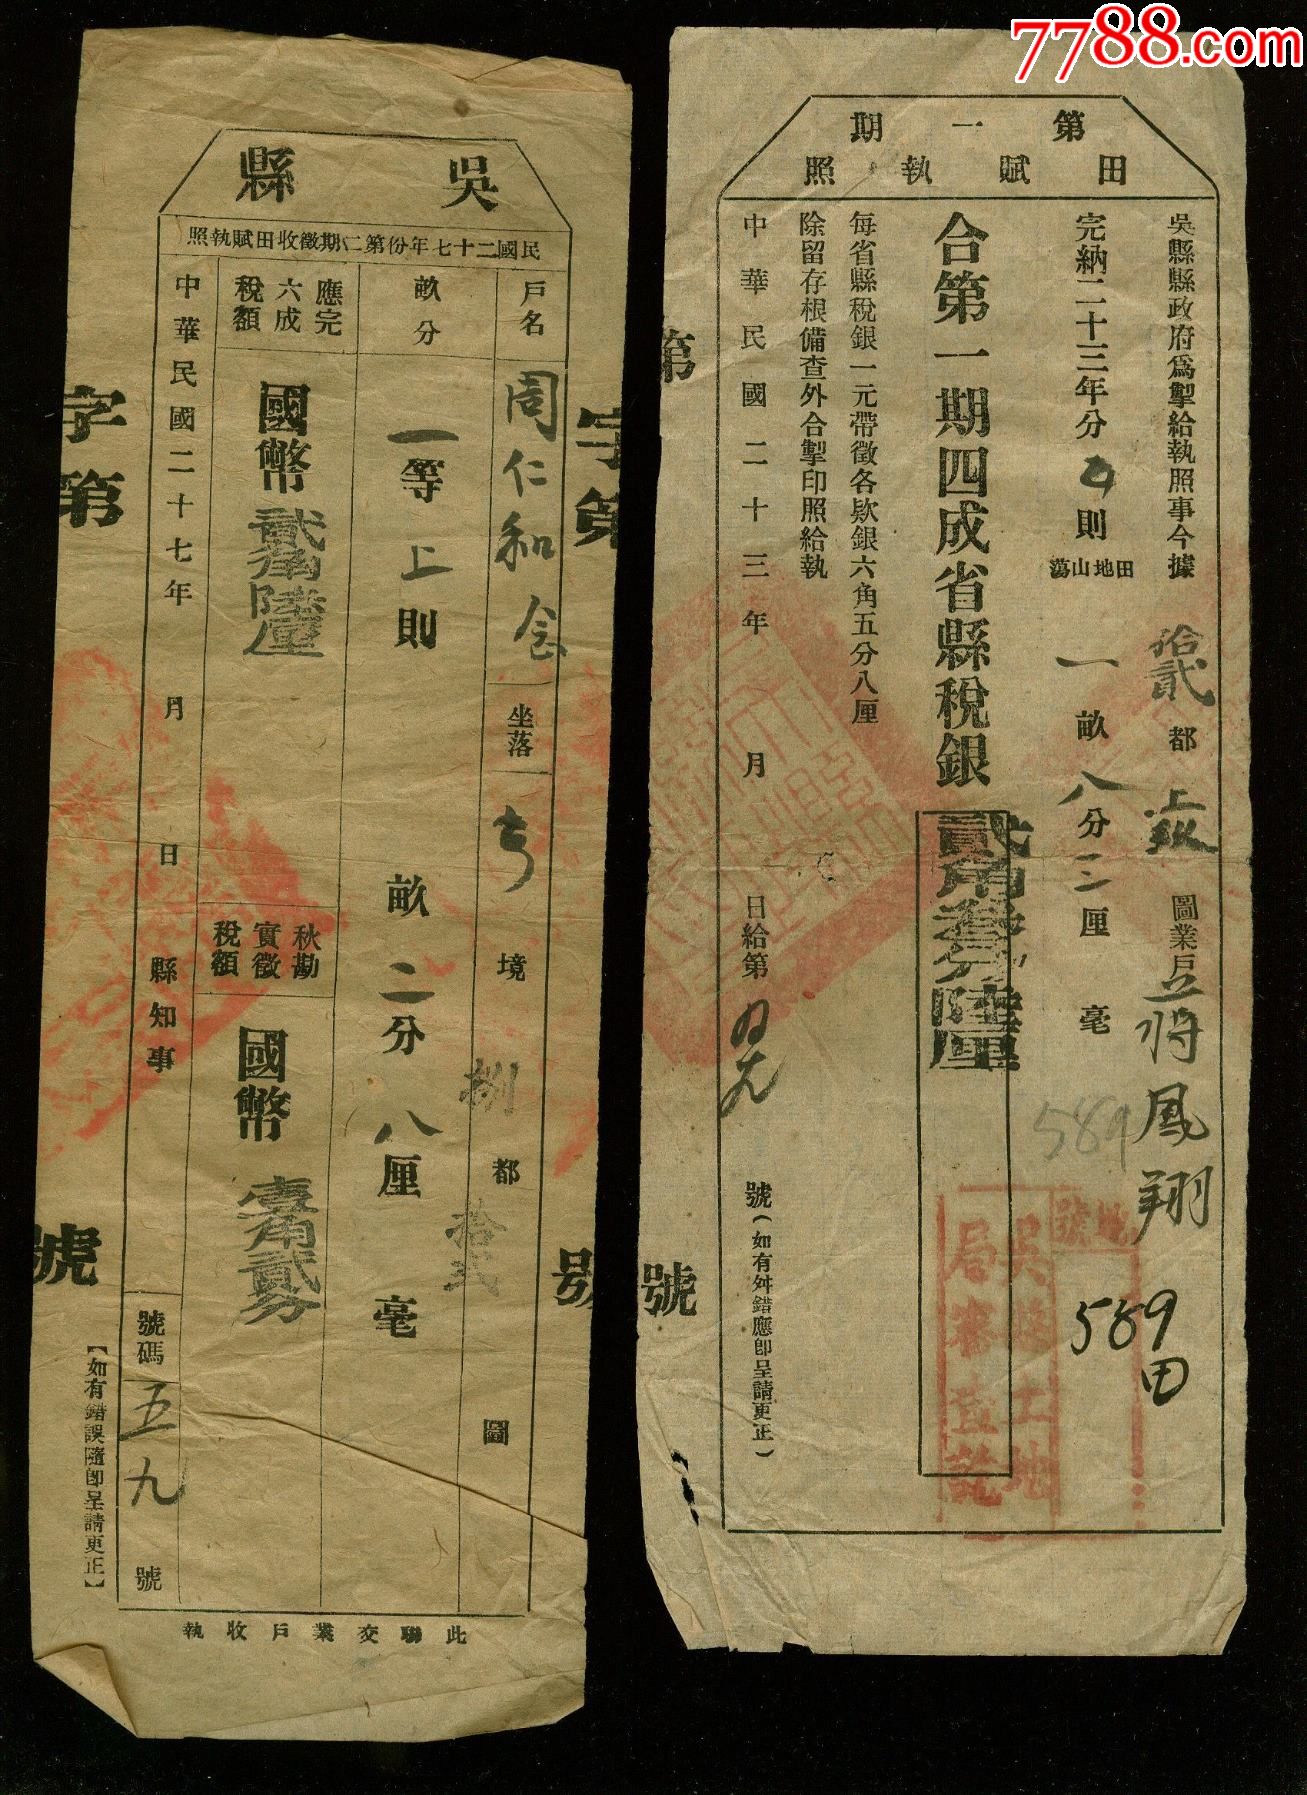 7788.com
第一期
田賦執照
吳縣縣政府為掣給執照事今據 拾貳 都 上 圖業戶 蔣鳳翔
完納二十三年分 則 田地山蕩 一 畝 八 分 二 厘 毫
合第一期四成省縣稅銀 貳角叁分陸厘
每省縣稅銀一元帶徵各欵銀六角五分八厘
除留存根備查外合掣印照給執
中華民國二十三年 月 日給第 號(如有舛錯應卽呈請更正)
589
589
田
吳縣土地
局審查訖
號
第
號
吳縣
民國二十七年份第二期徵收田賦執照
戶名 周仁和 坐落 境 捌 都 拾弍 圖
畝分 一等上則 畝 二分 八厘 毫
應完六成稅額 國幣 貳角陸厘
秋勘實徵稅額 國幣 壹角貳分
中華民國二十七年 月 日 縣知事
號碼 五九 號
【如有錯誤隨卽呈請更正】
此聯交業戶收執
字第
號
字第
號